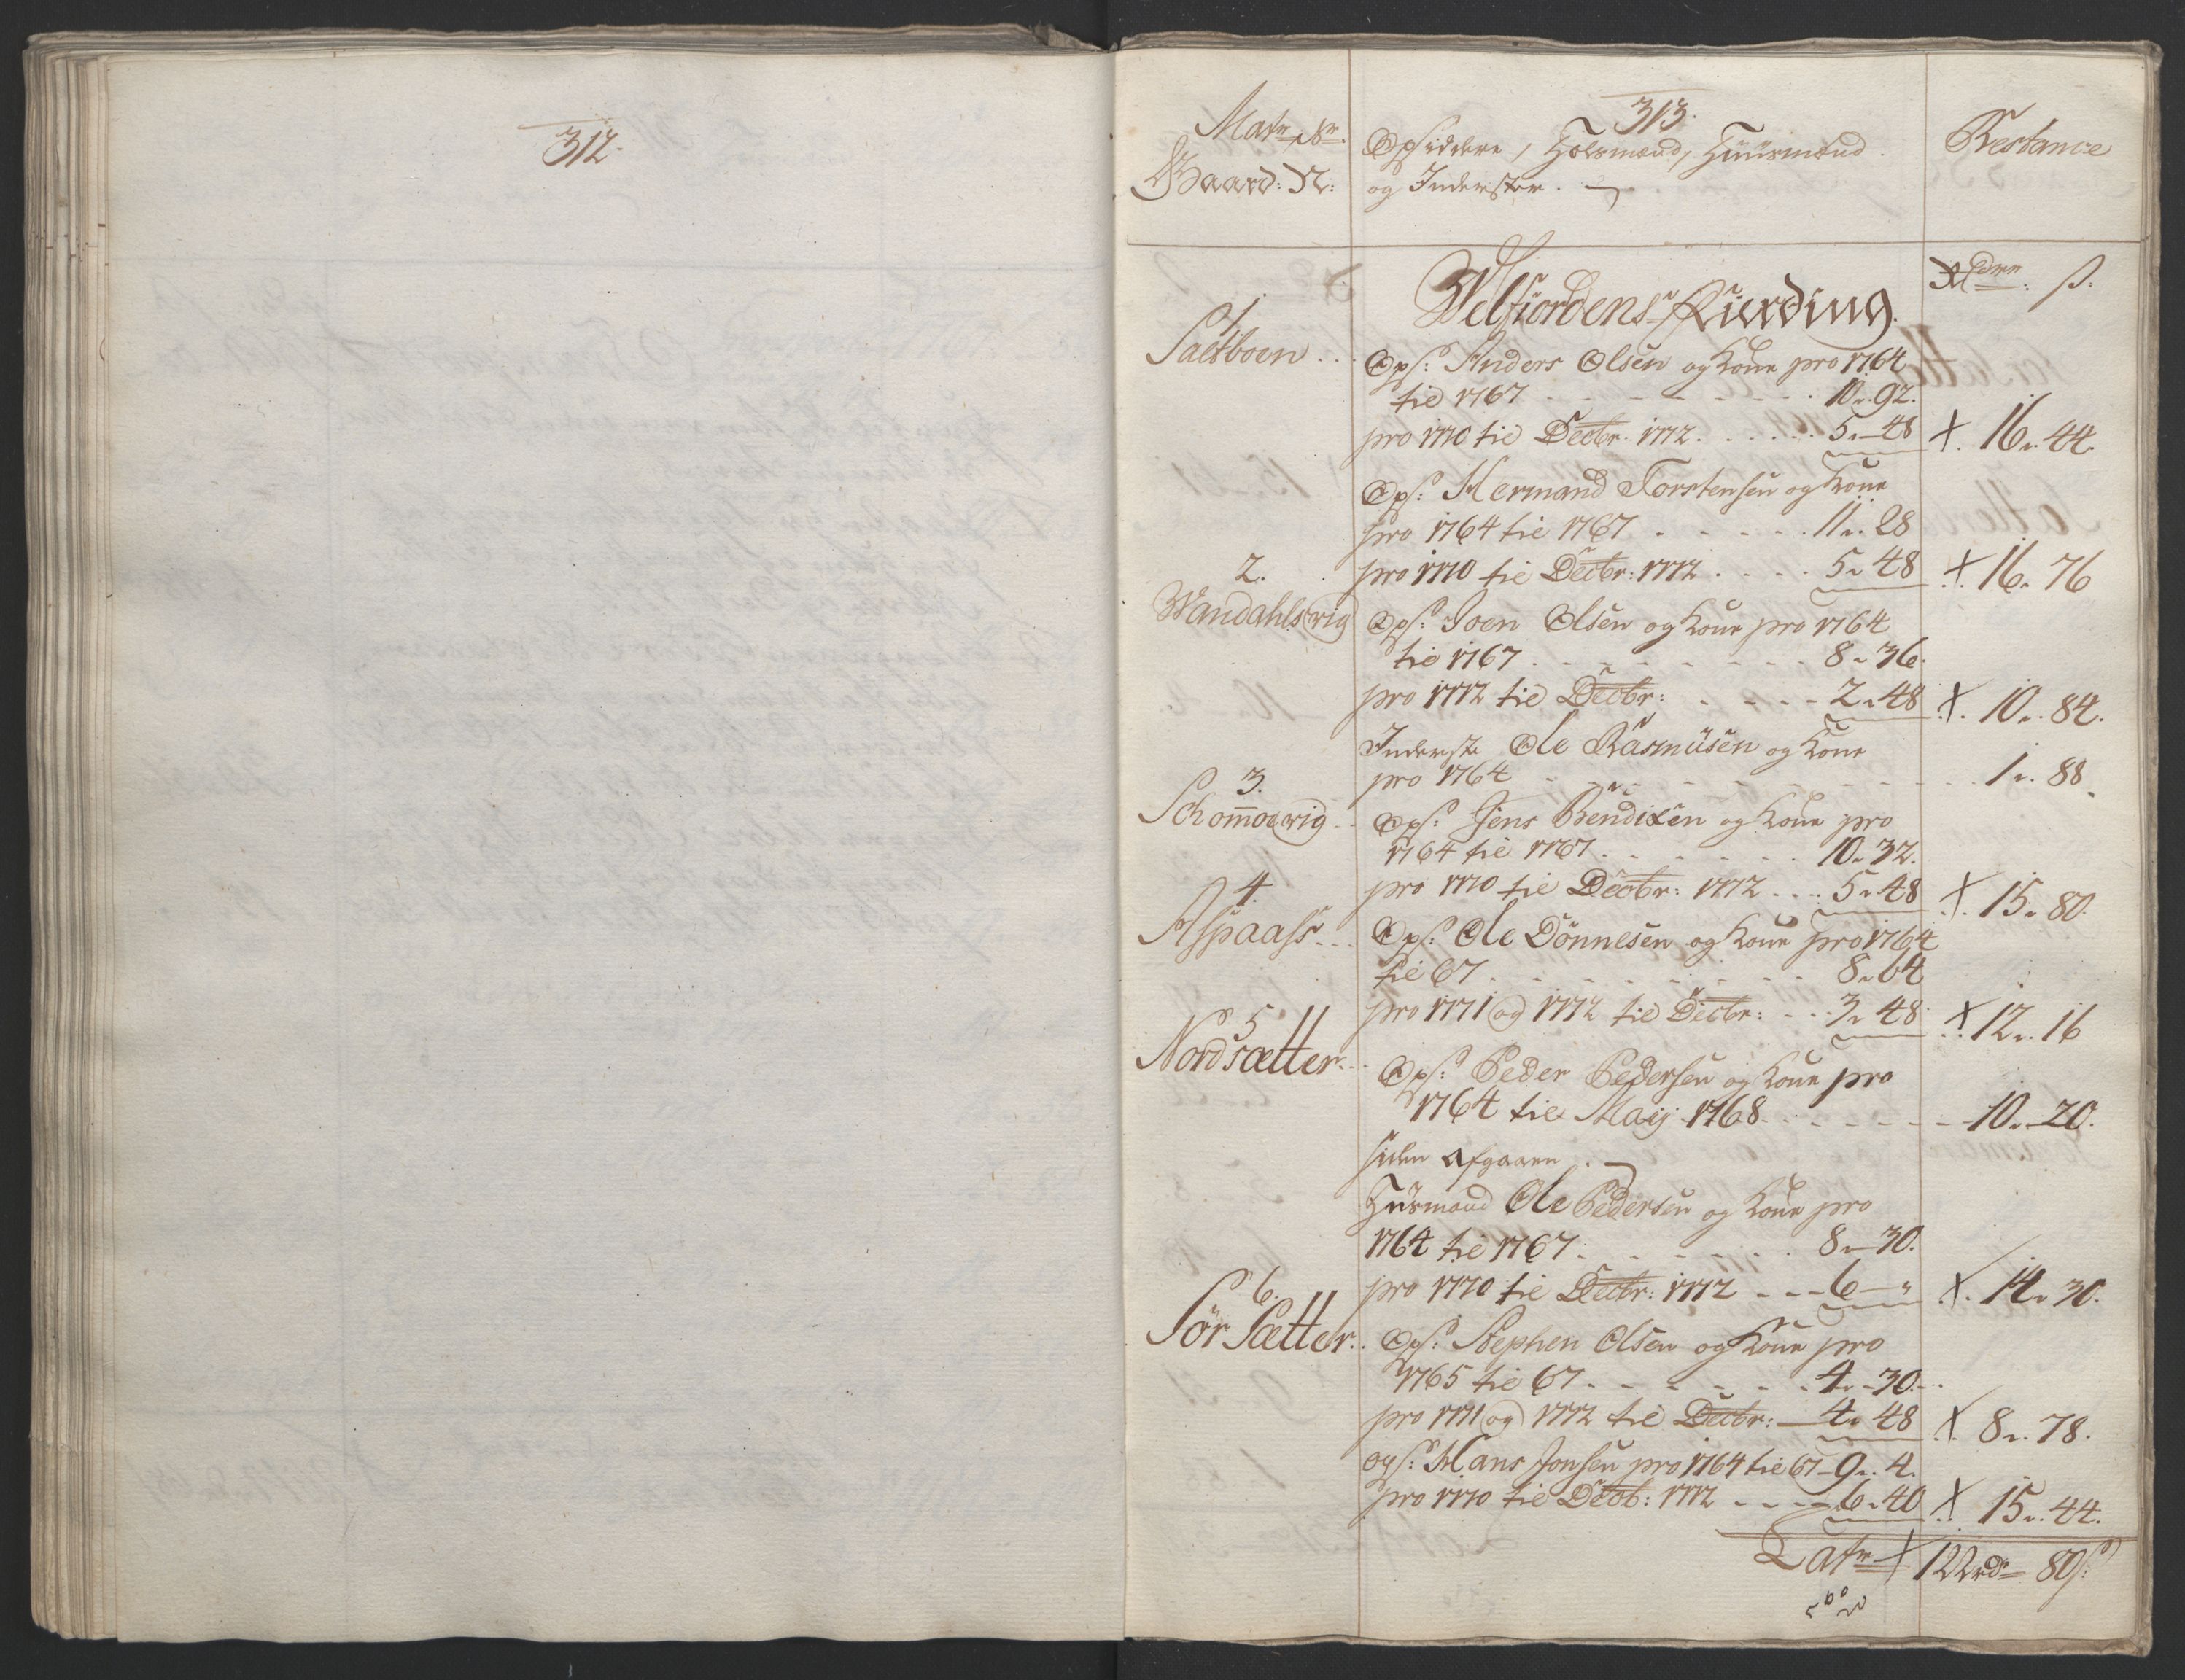 312.
313.
Matr: Nr:
Gaard: N:
Opsiddere, Folsmænd, Huusmænd
og Inderster.
Restance
Rdr: ß:
Welfiordens Fierding.
1.
Saltboen
Ops: Anders Olsen og Kone pro 1764
til 1767 - - - 10 „ 92.
pro 1770 til Decbr. 1772. - - - 5 „ 48 X. 16 „ 44.
Ops: Hermand Torstensen og Kone
pro 1764 til 1767 - - - 11 „ 28
pro 1770 til Decbr: 1772 - - - 5 „ 48 X. 16 „ 76
2.
Wandahlsvig
Ops: Joen Olsen og Kone pro 1764
til 1767 - - - 8 „ 36.
pro 1772 til Decbr: - - - 2 „ 48 X. 10 „ 84.
Inderste Ole Rasmusen og Kone
pro 1764 - - - 1 „ 88
3.
Schomoevig
Ops: Jens Bendixen og Kone pro
1764 til 1767 - - - 10 „ 32.
pro 1770 til Decbr: 1772 - - - 5 „ 48 X. 15 „ 80.
4.
Aspaass
Ops: Ole Dönnesen og Kone pro 1764
til 67 - - - 8 „ 64
pro 1771 og 1772 til Decbr: - - - 3 „ 48 X. 12 „ 16
5
Nordsætter
Ops: Peder Pedersen og Kone pro
1764 til Maij 1768 - - - 10 „ 20.
siden afgaaen.
Husmand Ole Pedersen og Kone pro
1764 til 1767 - - - 8 „ 30.
pro 1770 til Decbr: 1772 - - - 6 - „ X. 14 „ 30.
6.
Sör Sætter
Ops: Stephen Olsen og Kone pro
1765 til 67 - - - 4 „ 30.
pro 1771 og 1772 til Decbr: - 4 „ 48 X. 8 „ 78.
Ops: Hans Jonsen pro 1764 til 67 - 9 „ 4.
pro 1770 til Decb: 1772 - - - 6 „ 40 X. 15 „ 44.
Latr X 122 rdr 80 ß: